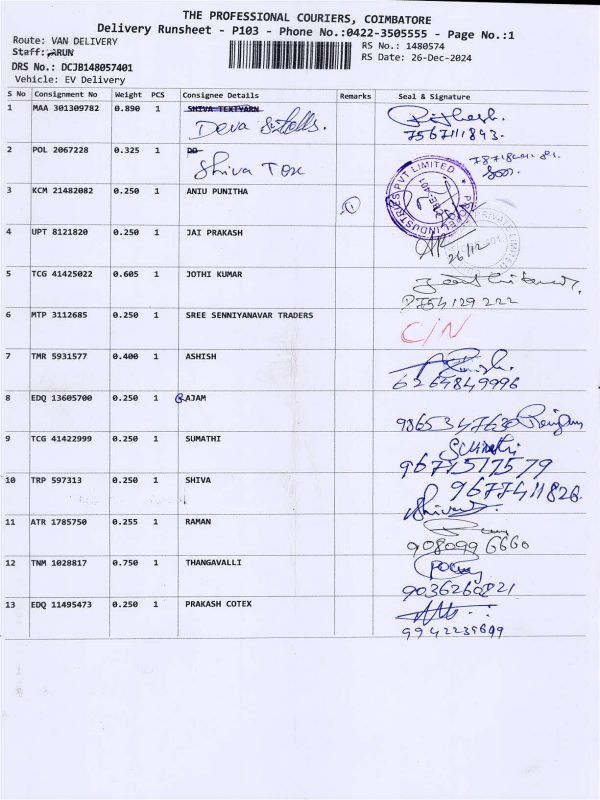 THE PROFESSIONAL COURIERS, COIMBATORE
Delivery Runsheet - P103 - Phone No.:0422-3505555 - Page No.:1
Route: VAN DELIVERY
RS No.: 1480574
Staff: ARUN
RS Date: 26-Dec-2024
DRS No.: DCJB148057401
Vehicle: EV Delivery
S No Consignment No Weight PCS Consignee Details Remarks Seal & Signature
1 MAA 301309782 0.890 1 SHIVA TEXTYARN
Deva
7567111893.
2 POL 2067228 0.325 1
Shiva Tex
3 KCM 21482082 0.250 1 ANIU PUNITHA
4 UPT 8121820 0.250 1 JAI PRAKASH
26/12
5 TCG 41425022 0.605 1 JOTHI KUMAR
9754129222
6 MTP 3112685 0.250 1 SREE SENNIYANAVAR TRADERS
C/N
7 TMR 5931577 0.400 1 ASHISH
6264849996
8 EDQ 13605700 0.250 1 RAJAM
9865347630
9 TCG 41422999 0.250 1 SUMATHI
Sumathi
9671517579
10 TRP 597313 0.250 1 SHIVA
9677411828
11 ATR 1785750 0.255 1 RAMAN
9080996660
12 TNM 1028817 0.750 1 THANGAVALLI
9036260821
13 EDQ 11495473 0.250 1 PRAKASH COTEX
9942239699